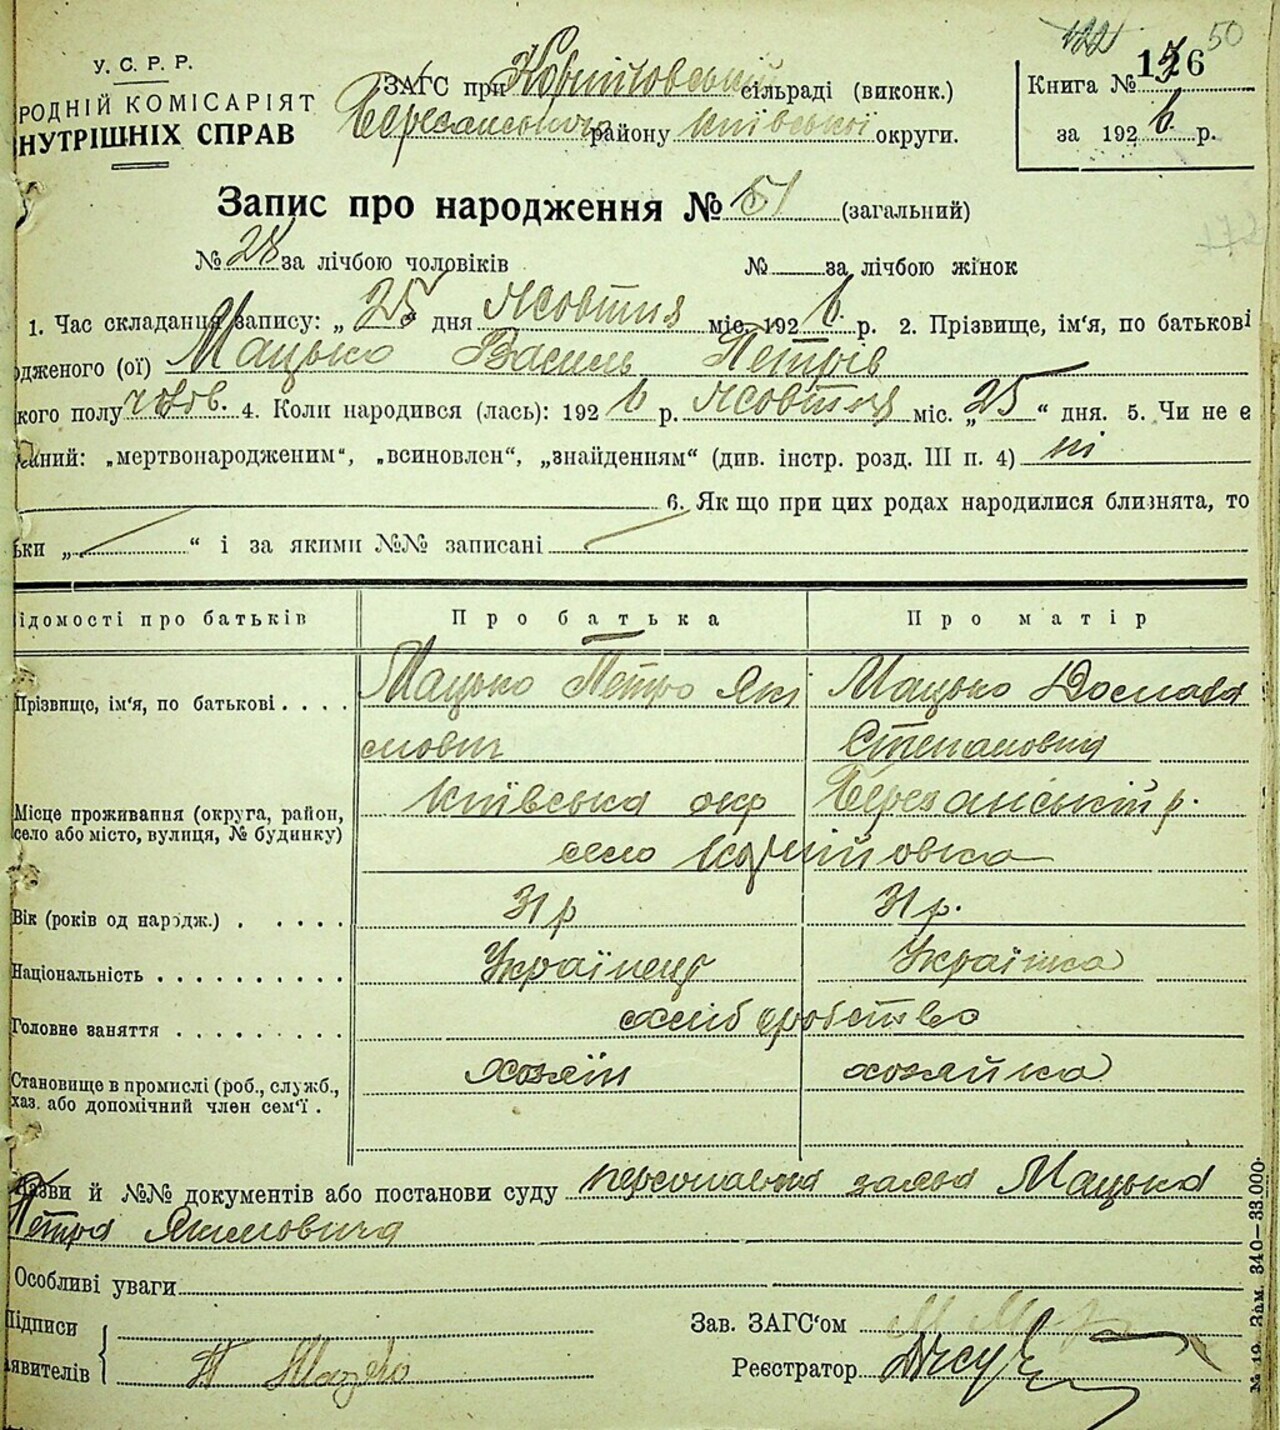 50
У. С. Р. Р.
РОДНІЙ КОМІСАРІЯТ
НУТРІШНІХ СПРАВ
ЗАГС при сільраді (виконк.)
району Київської округи.
Книга №
за 1926 р.
Запис про народження № 51 (загальний)
№ 28 за лічбою чоловіків № за лічбою жінок
1. Час складання запису: „ 25 дня Жовтня міс. 1926 р. 2. Прізвище, ім'я, по батькові
одженого (ої) Мацько Василь Петрів
кого полу чолов. 4. Коли народився (лась): 1926 р. Жовтня міс. „25“ дня. 5. Чи не є
аний: „мертвонародженим“, „всиновлен“, „знайденням“ (див. інстр. розд. III п. 4) ні
6. Як що при цих родах народилися близнята, то
ьки „ “ і за якими №№ записані
ідомості про батьків Про батька Про матір
Прізвище, ім'я, по батькові . . . . Мацько Петро Які Мацько
мович Степановна
Місце проживання (округа, район, Київська окр Березанській р.
село або місто, вулиця, № будинку)
село
Вік (років од народж.) . . . . . 31 р 31 р.
Національність . . . . . . . . . . Українець Українка
Головне заняття . . . . . . . . . хліборобство
Становище в промислі (роб., служб., хозяїн хозяйка
хаз. або допомічний член сем'ї .
Назви й №№ документів або постанови суду персональна заява Мацька
Петра Якимовича
Особливі уваги
Підписи
Зав. ЗАГС'ом
явителів П Мацько Реєстратор
№ 19. Зам. 340—33.000.